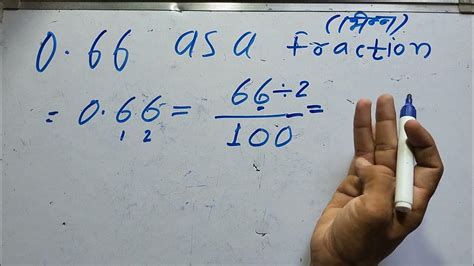 (भिन्न)
0.66 as a fraction
= 0.66 = 66÷2/100 =
1 2